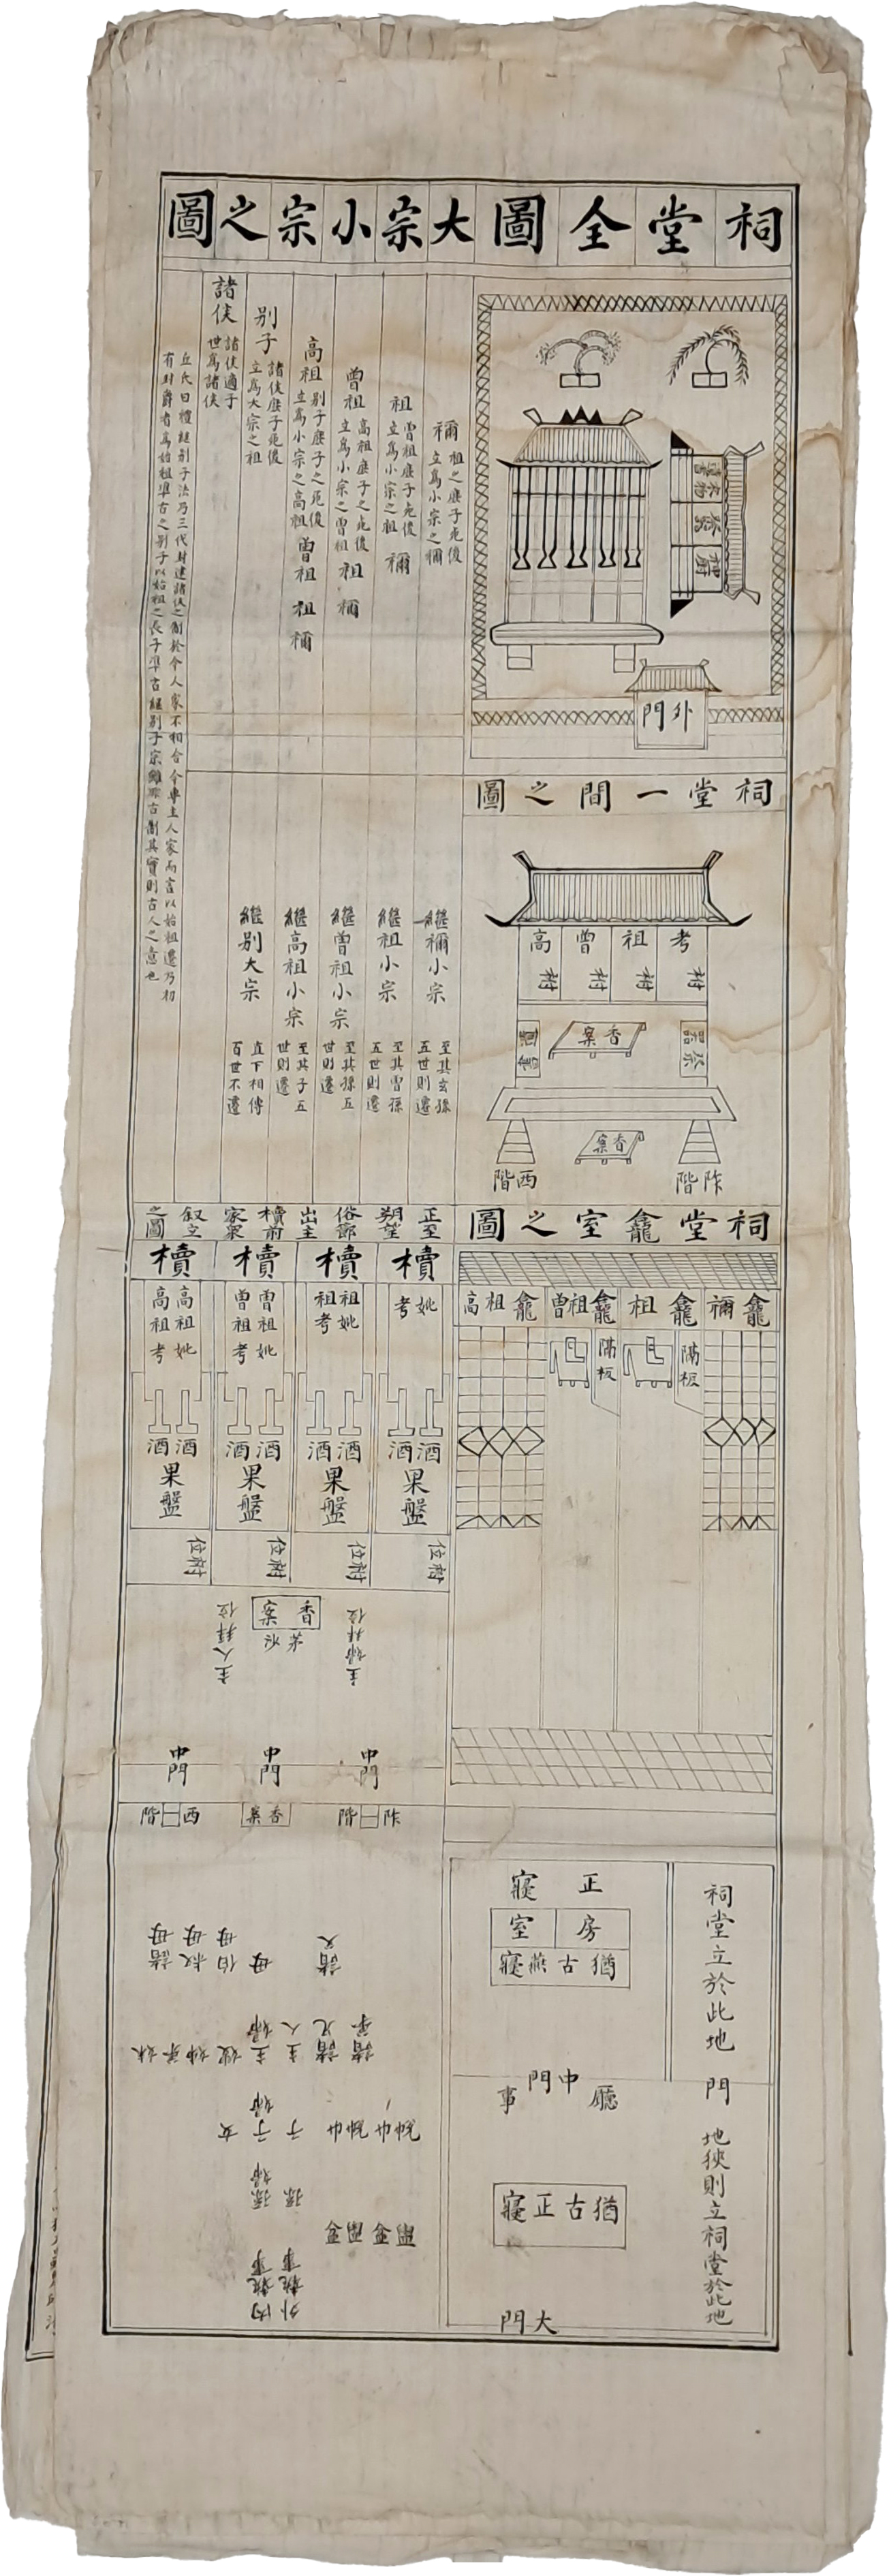 祠堂全圖
外門
大宗小宗之圖
禰 祖之庶子死後立爲小宗之禰
祖 曾祖庶子死後立爲小宗之祖 禰
曾祖 高祖庶子之死後立爲小宗之曾祖 祖 禰
高祖 別子庶子之死後立爲小宗之高祖 曾祖 祖 禰
別子 諸侯庶子死後立爲大宗之祖
諸侯 諸侯適子世爲諸侯
丘氏曰禮經別子法乃三代封建諸侯之制於今人家不相合今專主人家而言以始祖遷乃初
有封爵者爲始祖準古之別子以始祖之長子準古繼別子宗雖非古制其實則古人之意也
繼禰小宗 至其玄孫五世則遷
繼祖小宗 至其曾孫五世則遷
繼曾祖小宗 至其孫五世則遷
繼高祖小宗 至其子五世則遷
繼別大宗 直下相傳百世不遷
祠堂一間之圖
考 祔
祖 祔
曾 祔
高 祔
祭器
香案
香案
阼階
西階
祠堂龕室之圖
禰龕
祖龕
曾祖龕
高祖龕
隔板
隔板
正至朔望俗節出主櫝前家衆叙立之圖
櫝
妣 考
酒 酒
果盤
祔位
櫝
祖妣 祖考
酒 酒
果盤
祔位
櫝
曾祖妣 曾祖考
酒 酒
果盤
祔位
櫝
高祖妣 高祖考
酒 酒
果盤
祔位
香案
茅沙
主婦拜位
主人拜位
中門
中門
中門
阼階
香案
西階
諸父
母
伯母
叔母
諸母
諸弟
諸兄
主人
主婦
嫂
姊
弟妹
帨巾
帨巾
子
子婦
女
孫
孫婦
盥盆
盥盆
外執事
內執事
祠堂立於此地
門
地狹則立祠堂於此地
正寢
房
室
猶古燕寢
中門
廳事
猶古正寢
大門